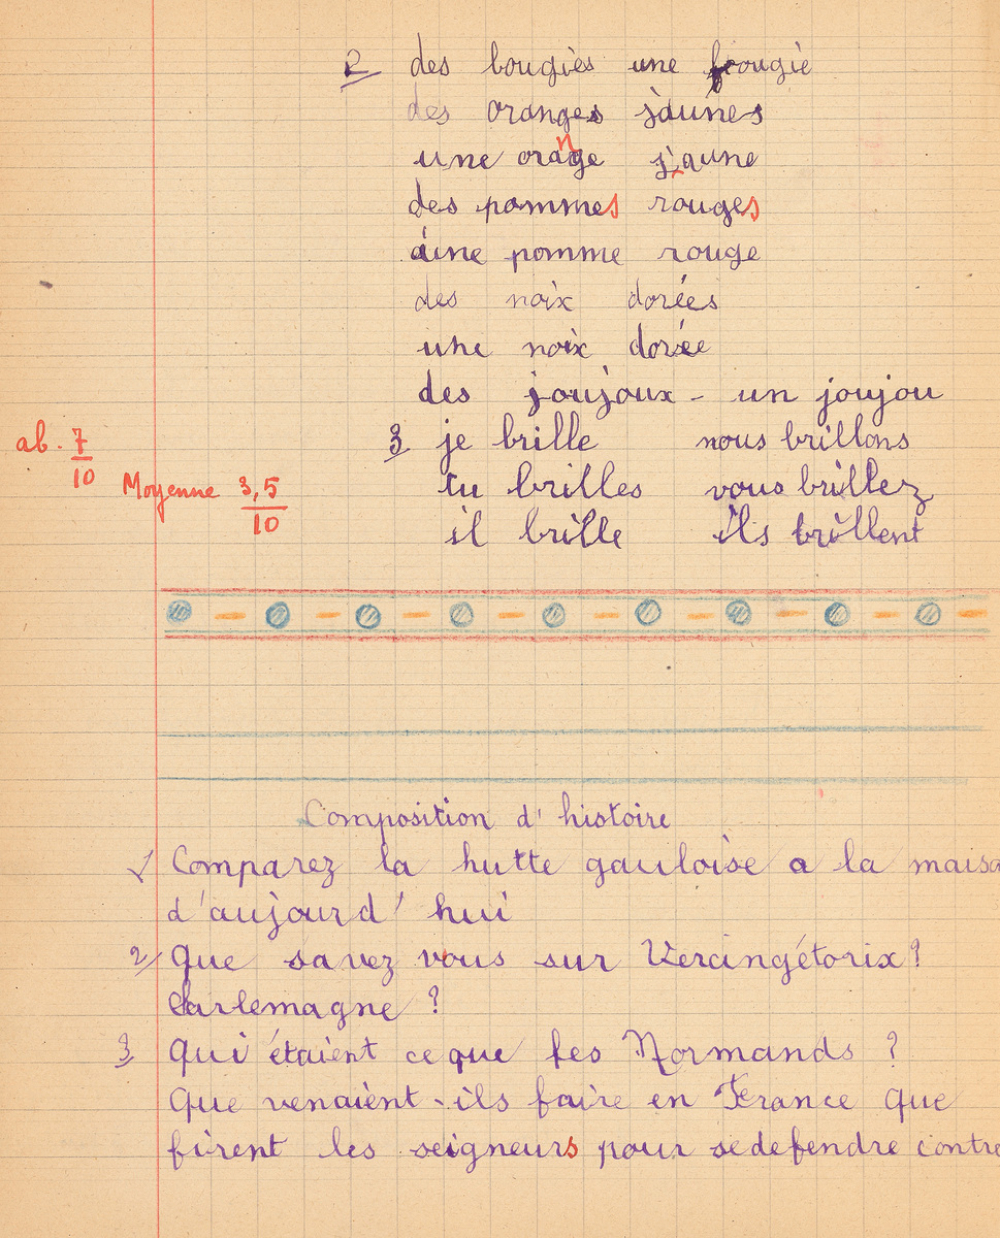 2 des bougies une bougie
des oranges jaunes
une orange jaune
des pommes rouges
une pomme rouge
des noix dorées
une noix dorée
des joujoux - un joujou
3 je brille nous brillons
ab. 7/10
Moyenne 3,5/10
tu brilles vous brillez
il brille ils brillent
Composition d' histoire
1/ Comparez la hutte gauloise a la maiso
d'aujourd' hui
2/ Que savez vous sur Vercingétorix?
Carlemagne ?
3 Qui étaient ceque les Normands ?
Que venaient-ils faire en France Que
firent les seigneurs pour sedefendre contre